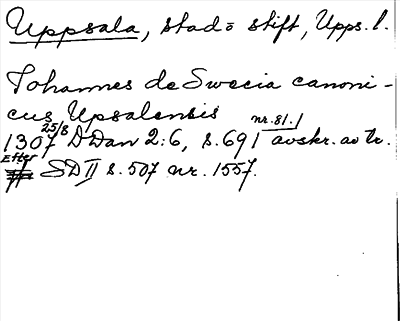 Uppsala, stad o stift, Upps. l.
Johannes de Swecia canoni-
cus Upsalensis
1307 25/8 DDan 2:6, s. 69 nr. 81. avskr. av tr.
Efter SD II s. 507 nr. 1557.